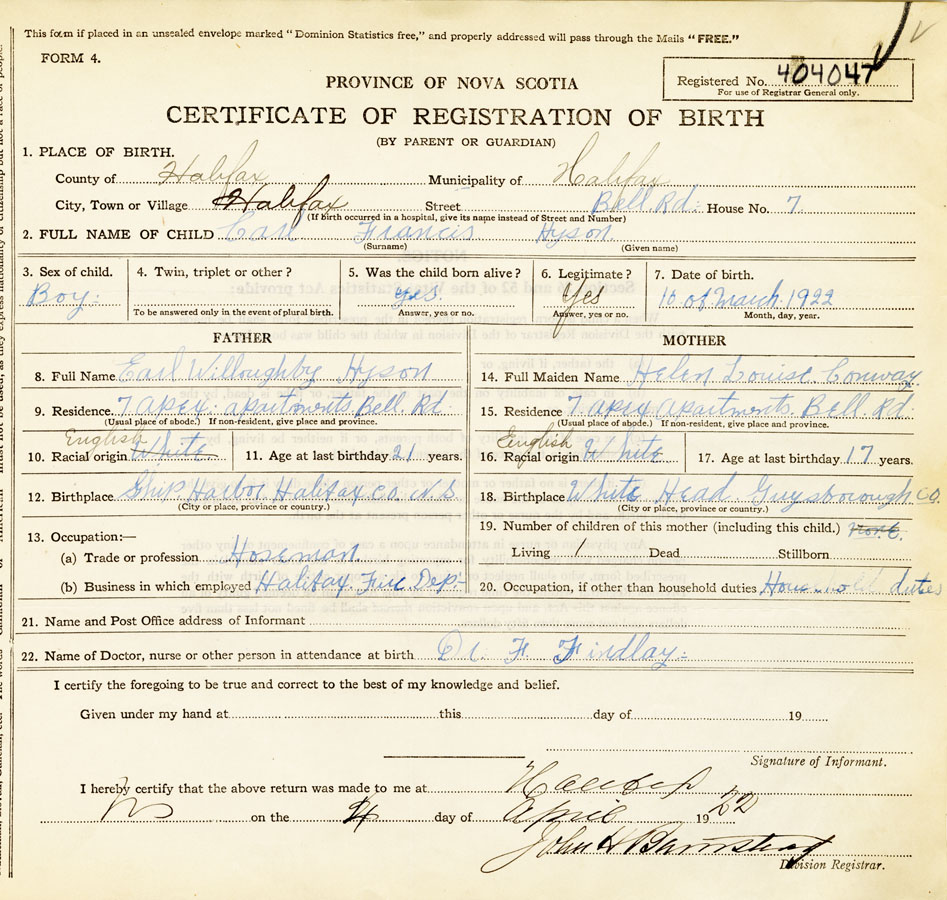 This form if placed in an unsealed envelope marked "Dominion Statistics free," and properly addressed will pass through the Mails "FREE."
FORM 4.
Registered No. 404047
For use of Registrar General only.
PROVINCE OF NOVA SCOTIA
CERTIFICATE OF REGISTRATION OF BIRTH
(BY PARENT OR GUARDIAN)
1. PLACE OF BIRTH.
County of Halifax Municipality of Halifax
City, Town or Village Halifax Street Bell Rd. House No. 7.
(If birth occurred in a hospital, give its name instead of Street and Number)
2. FULL NAME OF CHILD Carl Francis Hyson.
(Surname) (Given name)
3. Sex of child. 4. Twin, triplet or other? 5. Was the child born alive? 6. Legitimate? 7. Date of birth.
Boy. yes. Yes 10 of March 1922
To be answered only in the event of plural birth. Answer, yes or no. Answer, yes or no. Month, day, year.
FATHER MOTHER
8. Full Name Earl Willoughby Hyson 14. Full Maiden Name Helen Louise Conway
9. Residence 7 Apex apartments. Bell Rd. 15. Residence 7 Apex apartments. Bell Rd.
(Usual place of abode.) If non-resident, give place and province. (Usual place of abode.) If non-resident, give place and province.
English English
10. Racial origin White 11. Age at last birthday 21 years. 16. Racial origin White 17. Age at last birthday 17 years.
12. Birthplace Ship Harbor Halifax Co. N.S 18. Birthplace White Head Guysborough CO.
(City or place, province or country.) (City or place, province or country.)
13. Occupation:— 19. Number of children of this mother (including this child.)
(a) Trade or profession Hoseman Living 1 Dead Stillborn
(b) Business in which employed Halifax Fire Dep. 20. Occupation, if other than household duties Household duties
21. Name and Post Office address of Informant
22. Name of Doctor, nurse or other person in attendance at birth Dr. F. Findlay.
I certify the foregoing to be true and correct to the best of my knowledge and belief.
Given under my hand at this day of 19
Signature of Informant.
I hereby certify that the above return was made to me at Halifax
NS on the 4 day of April 1922
John H Barnstead
Division Registrar.